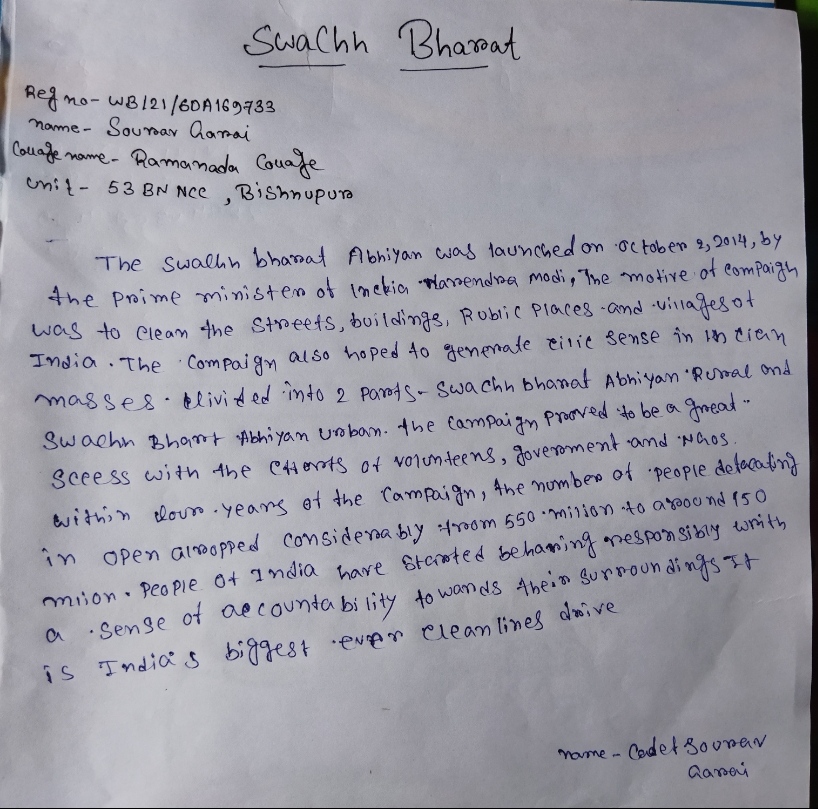 Swachh Bharat
Reg no- WB/21/SDA169733
name- Sourav Garai
Couage name- Ramanada Couage
unit- 53 BN NCC , Bishnupur
The swachh bharat Abhiyan was launched on october 2, 2014, by
the prime minister of India Narendra modi, The motive of compaign
was to clean the streets, buildings, Public Places and villages of
India. The compaign also hoped to generate civic sense in Indian
masses. divided into 2 parts- swachh bharat Abhiyan Rural and
swachh Bharat Abhiyan urban. the campaign proved to be a great
sceess with the efforts of volunteers, goverment and NGOs.
within four years of the campaign, the number of people defecating
in open dropped considerably from 550 milion to around 150
milion. People of India have started behaving responsibly with
a sense of accountability towards their surroundings It
is India's biggest ever cleanlines drive
name- Cadet Sourav
Garai